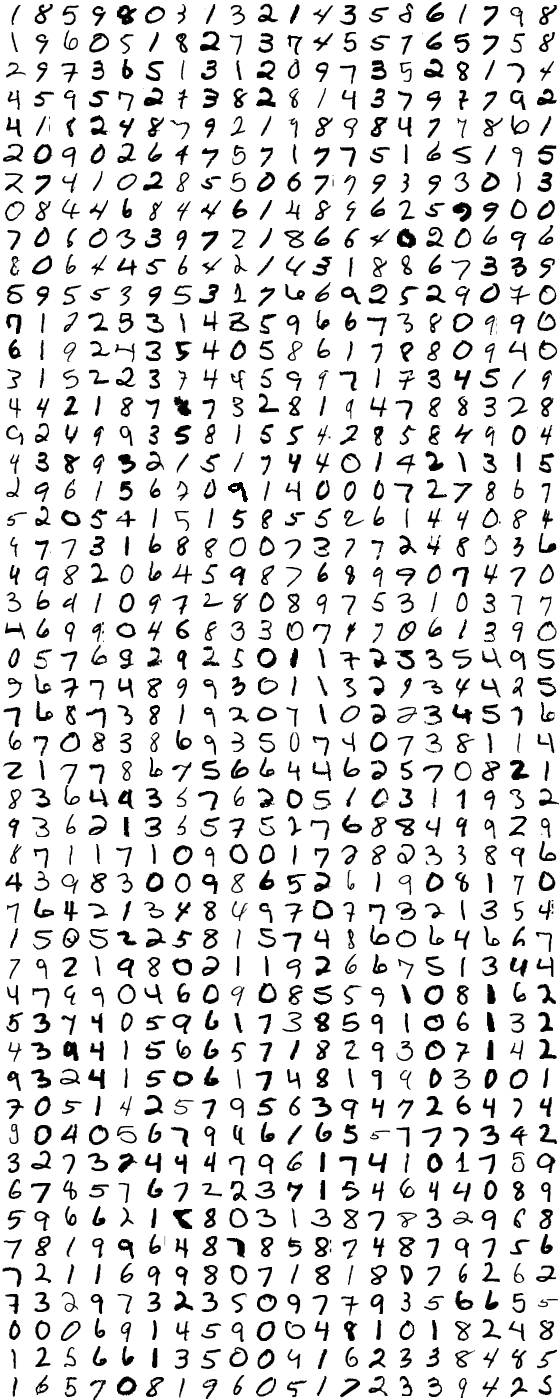 1 8 5 9 8 0 3 1 3 2 1 4 3 5 8 6 1 7 9 8
1 9 6 0 5 1 8 2 7 3 7 4 5 5 7 6 5 7 5 8
2 9 7 3 6 5 1 3 1 2 0 9 7 3 5 2 8 1 7 4
4 5 9 5 7 2 7 3 8 2 8 1 4 3 7 9 7 7 9 2
4 1 8 2 4 8 7 9 2 1 9 8 9 8 4 7 7 8 6 1
2 0 9 0 2 6 4 7 5 7 1 7 7 5 1 6 5 1 9 5
2 7 4 1 0 2 8 5 5 0 6 7 7 9 3 9 3 0 1 3
0 8 4 4 6 8 4 4 6 1 4 8 9 6 2 5 9 9 0 0
7 0 6 0 3 3 9 7 2 1 8 6 6 4 0 2 0 6 9 6
8 0 6 4 4 5 6 4 2 1 4 3 1 8 8 6 7 3 3 9
5 9 5 5 3 9 5 3 2 7 6 6 9 2 5 2 9 0 7 0
7 1 2 2 5 3 1 4 3 5 9 6 6 7 3 8 0 9 9 0
6 1 9 2 4 3 5 4 0 5 8 6 1 7 8 8 0 9 4 0
3 1 5 2 2 3 7 4 4 4 5 9 9 7 1 7 3 4 5 1 9
4 4 2 1 8 7 8 7 3 2 8 1 9 4 7 8 8 3 2 8
9 2 4 9 9 3 5 8 1 5 5 4 2 8 5 8 4 9 0 4
4 3 8 9 3 2 1 5 1 7 4 4 0 1 4 2 1 3 1 5
2 9 6 1 5 6 7 0 9 1 4 0 0 0 7 2 7 8 6 7
5 2 0 5 4 1 5 1 5 8 5 5 2 6 1 4 4 0 8 4
9 7 7 3 1 6 8 8 0 0 7 3 7 7 2 4 8 0 3 6
4 9 8 2 0 6 4 5 9 8 7 6 8 9 9 0 7 4 7 0
3 6 9 1 0 9 7 2 8 0 8 9 7 5 3 1 0 3 7 7
4 6 9 9 0 4 6 8 3 3 0 7 4 7 0 6 1 3 9 0
0 5 7 6 9 2 9 2 5 0 1 1 7 2 3 3 5 4 9 5
9 6 7 7 4 8 9 9 3 0 1 1 3 2 9 3 4 4 2 5
7 6 8 7 3 8 1 9 2 0 7 1 0 2 2 3 4 5 7 6
6 7 0 8 3 8 6 9 3 5 0 7 4 0 7 3 8 1 1 4
2 1 7 7 8 6 7 5 6 6 4 4 6 2 5 7 0 8 2 1
8 3 6 4 9 3 5 7 6 2 0 5 1 0 3 1 1 9 3 2
9 3 6 2 1 3 5 5 7 5 2 7 6 8 8 4 9 9 2 9
8 7 1 1 7 1 0 9 0 0 1 7 2 8 2 3 3 8 9 6
4 3 9 8 3 0 0 9 8 6 5 2 6 1 9 0 8 1 7 0
7 6 4 2 1 3 4 8 4 9 7 0 7 7 3 2 1 3 5 4
1 5 0 5 2 2 5 8 1 5 7 4 8 6 0 6 4 6 6 7
7 9 2 1 9 8 0 2 1 1 9 2 6 6 7 5 1 3 4 4
4 7 9 9 0 4 6 0 9 0 8 5 5 9 1 0 8 1 6 2
5 3 7 4 0 5 9 6 1 7 3 8 5 9 1 0 6 1 3 2
4 3 9 4 1 5 6 6 5 7 1 8 2 9 3 0 7 1 4 2
9 3 2 4 1 5 0 6 1 7 4 8 1 9 9 0 3 0 0 1
7 0 5 1 4 2 5 7 9 5 6 3 9 4 7 2 6 4 7 4
9 0 4 0 5 6 7 9 4 6 1 6 5 5 7 7 7 3 4 2
3 2 7 3 7 4 4 4 7 9 6 1 7 4 1 0 1 7 5 9
6 7 8 5 7 6 7 2 2 3 7 1 5 4 6 4 4 0 8 9
5 9 6 6 2 1 8 0 3 1 3 8 7 8 3 2 9 6 8
7 8 1 9 9 9 6 4 8 7 8 5 8 7 4 8 7 9 7 5 6
7 2 1 1 6 9 9 8 0 7 1 8 1 8 0 7 6 2 6 2
7 3 2 9 7 3 2 3 5 0 9 7 7 9 3 5 6 6 5 5
0 0 0 6 9 1 4 5 9 0 0 4 8 1 0 1 8 2 4 8
1 2 5 6 6 1 3 5 0 0 4 1 6 2 3 3 8 4 8 5
1 6 5 7 0 8 1 9 6 0 5 1 7 2 3 3 9 4 2 5